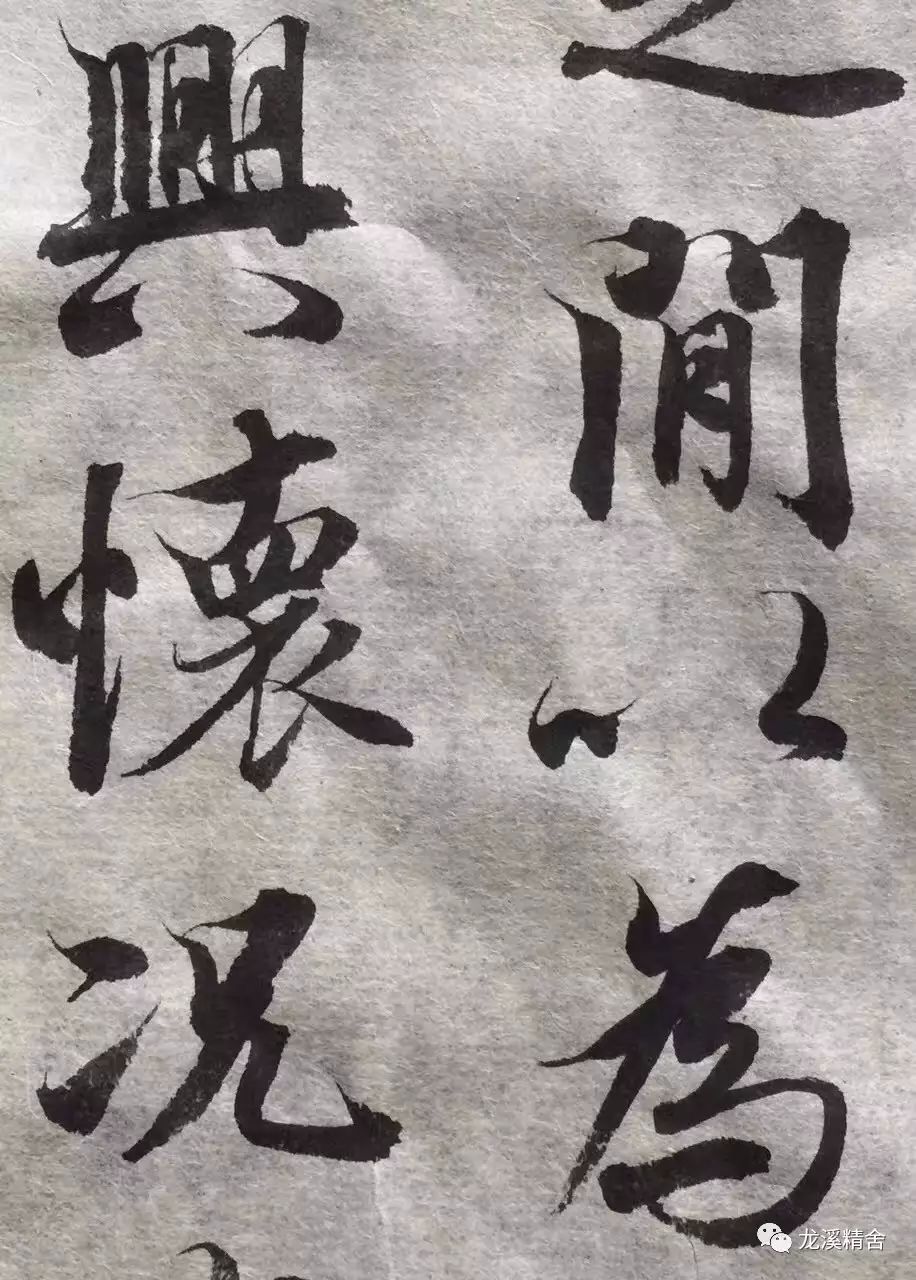 之閒以為
興懷况
龙溪精舍